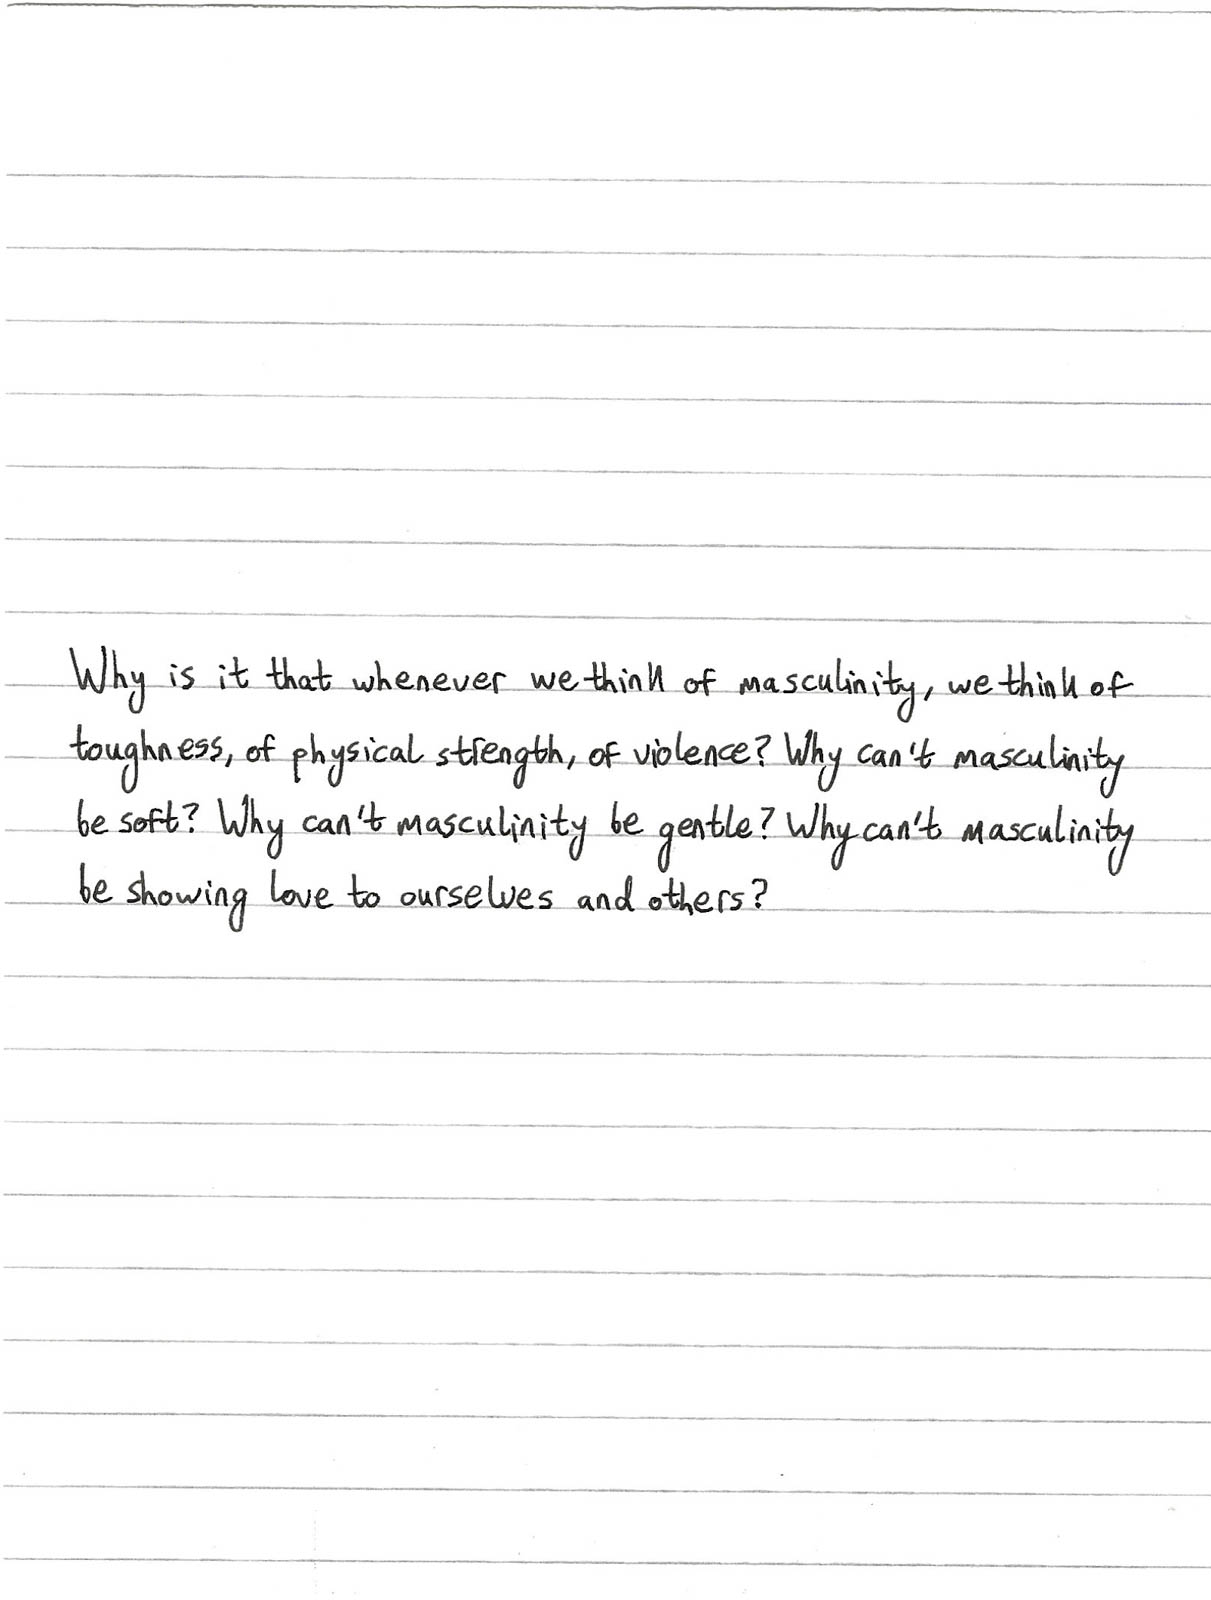 Why is it that whenever we think of masculinity, we think of
toughness, of physical strength, of violence? Why can't masculinity
be soft? Why can't masculinity be gentle? Why can't masculinity
be showing love to ourselves and others?